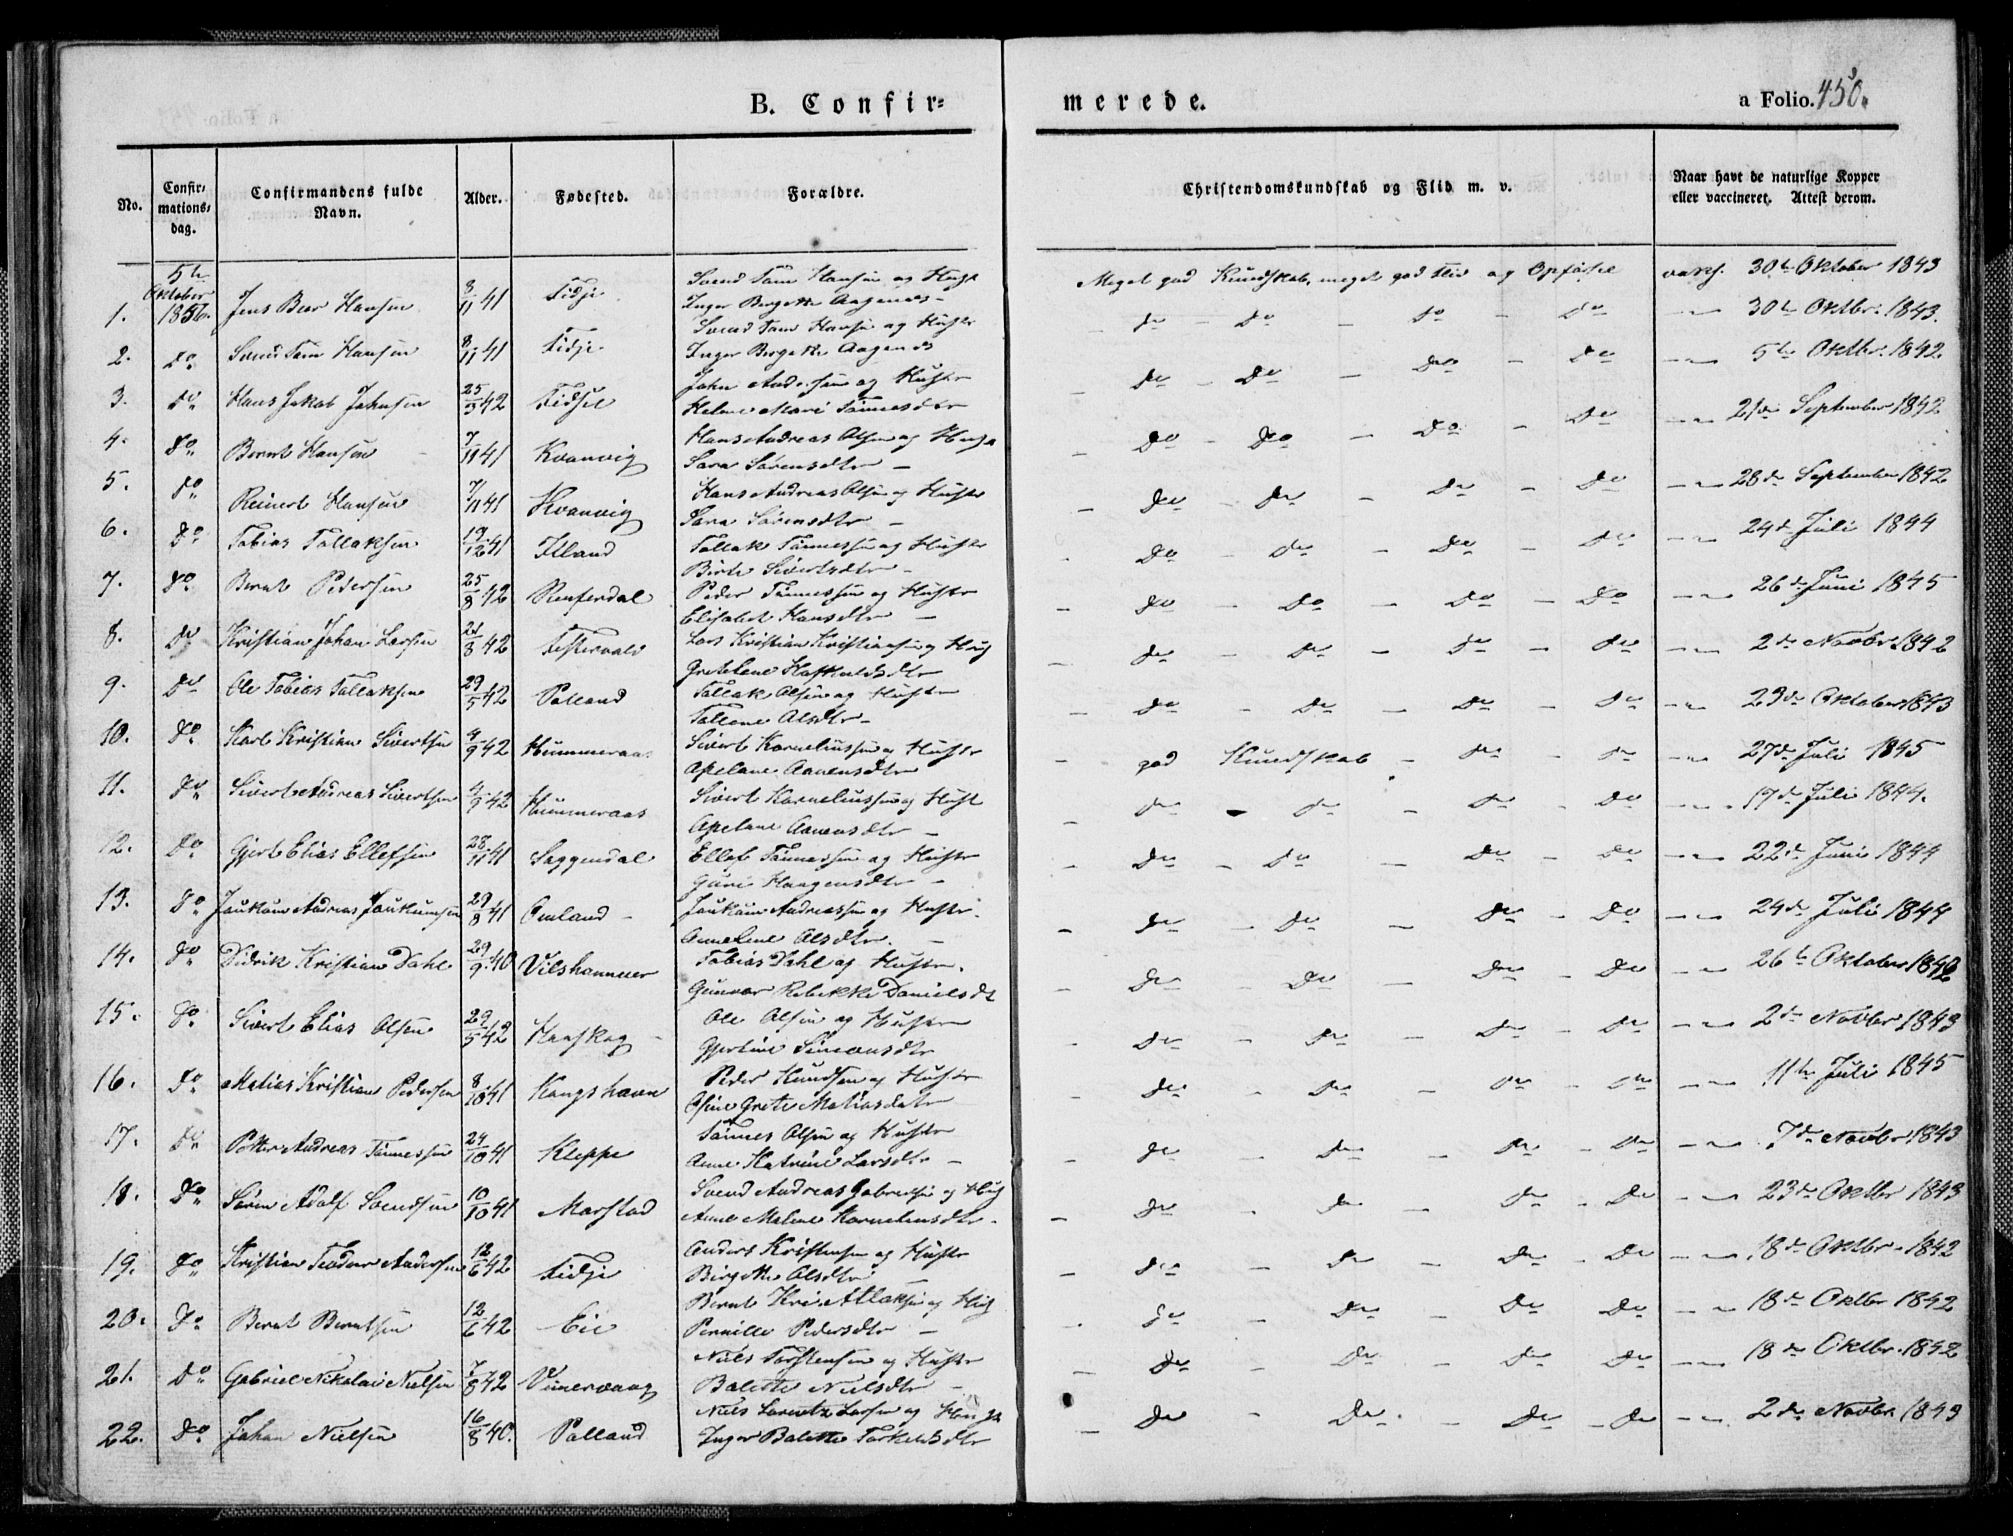 B. Confir=
merede.
a Folio. 450.
No.
Confir=
mations=
dag.
Confirmandens fulde
Navn.
Alder.
Fødested.
Forældre.
Christendomskundskab og Flid m. v.
Naar havt de naturlige Kopper
eller vaccineret. Attest derom.
5te Oktober 1856.
1. Jens Hansen 8/11 41 Fidje Svend Tam Hansen og Hust Inger Birgette Aagenes Meget god Kundskab, meget god Flid og Opførsel vaks. 30te Oktober 1843
2. Do Svend Tam Hansen 8/11 41 Fidje Svend Tam Hansen og Hustr Inger Birgette Aagenes - do - Do - Do - Do 30te Oktbr. 1843.
3. Do Hans Jakob Johnsen 25/3 42 John Andersen og Hustr Helene Marie Tønnesdtr - Do - Do - Do - Do 5te Oktbr. 1842.
4. Do Bernt Hansen 7/11 41 Kvanvig Hans Andreas Olsen og Hust Sara Sørensdtr - Do - Do - Do - Do 21de September 1842
5. Do Reinert Hansen 7/11 41 Kvanvig Hans Andreas Olsen og Hustr Sara Sørensdtr - Do - Do - Do - Do 28de September 1842
6. Do Tobias Tallaksen 19/12 41 Tallak Tønnessen og Hustr Birte Sivertsdtr - Do - Do - Do - Do 24de Juli 1844
7. Do Bernt Pedersen 25/8 42 Peder Tønnessen og Hustr Elisabet Hansdtr - Do - Do - Do - Do 26de Juni 1845
8. Do Kristian Johan Larsen 21/8 42 Lars Kristian Kristiansen og Hust - Do - Do - Do - Do 2de Novbr. 1842
9. Do Ole Tobias Tallaksen 29/5 42 Salland Tallak Olsen og Hustr Tallene Olsdtr - Do - Do - Do - Do 23de Oktober 1843
10. Do Karl Kristian Sivertsen 4/9 42 Hummeraas Sivert Korneliussen og Hustr Aanensdtr - god Kundskab - Do - Do 27de Juli 1845
11. Do Sivert Andreas Sivertsen 4/9 42 Hummeraas Sivert Korneliussen og Hust Aanensdtr - Do - Do - Do - Do 17de Juli 1844.
12. Do Gjert Elias Ellefsen 28/11 41 Seggendal Ellef Tønnessen og Hustr Guri Haagensdtr - Do - Do - Do - Do 22de Juni 1844
13. Do Joukum Andreas Joukumsen 29/8 41 Omland Joukum Andreassen og Hustr. Annelene Olsdtr. - Do - Do - Do - Do 24de Juli 1844
14. Do Didrik Kristian Dahl 29/9 40 Vilshammer Tobias Dahl og Hustr. Gunvor Rebekke Danielsdt - Do - Do - Do - Do 26te Oktober 1842
15. Do Sivert Elias Olsen 29/5 42 Haaskog Ole Olsen og Hustr Gjertine Simonsdtr - Do - Do - Do - Do 2de Novbr 1843
16. Do Matias Kristian Pedersen 8/10 41 Kongshavn Peder Knudsen og Hustr Grete Matiasdatr - Do - Do - Do - Do 11te Juli 1845
17. Do Petter Andreas Tønnessen 24/10 41 Kleppe Tønnes Olsen og Hustr Anne Katrine Larsdtr - Do - Do - Do - Do 7de Novbr 1843
18. Do Søren Adolf Svendsen 10/10 41 Marstad Svend Andreas Gabrielsen og Hust Anne Malene Korneliusdtr. - Do - Do - Do - Do 23de Oktbr 1843
19. Do Kristian Teodor Andersen 12/6 42 Fidje Anders Kristensen og Hustr Birgette Olsdtr - Do - Do - Do - Do 18de Oktbr. 1842
20. Do Bernt Berntsen 12/6 42 Eie Bernt Kri. Atlaksen og Hust Pernille Pedersdtr - Do - Do - Do - Do 18de Oktbr 1842
21. Do Gabriel Nikolai Nielsen 7/8 42 Niels Torstensen og Hustr Balette Nielsdtr - Do - Do - Do - Do 18de Oktbr. 1842
22. Do Johan Nielsen 16/8 40. Salland Niels Lorentz Larsen og Hust Inger Balette Torkelsdtr - Do - Do. - Do - Do 2de Novbr 1843